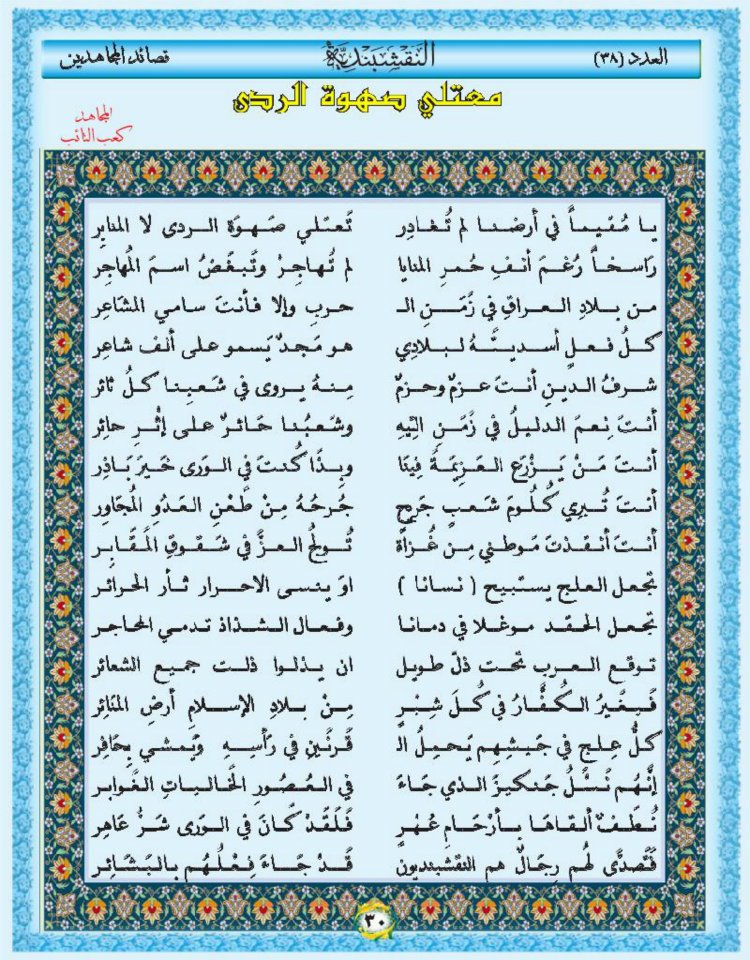 العدد (٣٨) النقشبندية قصائد المجاهدين
معتلي صهوة الردى
المجاهد
كعب التائب
يا مُقيماً في أرضنا لم تُغادِر تَعتلي صَهوَة الردى لا المنابِر
رَاسخاً رُغمَ أنفِ حُمرِ المنايا لم تُهاجِرْ وتَبغَضُ اسمَ المُهاجِر
من بلادِ العراقِ في زَمَنِ الـ حربِ وإلا فأنتَ سامي المشَاعر
كلُّ فعلٍ أسديتَهُ لبلادِي هو مَجدٌ يَسمو على ألف شاعر
شرفُ الدينِ أنتَ عزمٌ وحزمٌ مِنهُ يروى في شَعبِنا كلُّ ثائر
أنتَ نِعمَ الدليلُ في زَمَنِ التِيهِ وشَعبُنا حَائرٌ على إثْرِ حائِر
أنتَ مَنْ يَزْرَع العَزِيمَةُ فِينَا وبِذَا كُنتَ في الوَرَى خَيرَ بَاذِر
أنتَ تُبرِي كُلُومَ شَعبٍ جَرِيحٍ جُرحُهُ مِنْ طَعْنِ العَدُوِ المُجَاوِر
أنتَ أنقذتَ مَوطني مِن غُزاةٍ تُولجُ العزَّ في شَقوقِ المَقَابر
تجعل العلج يستبيح ( نسانا ) او ينسى الاحرار ثأر الحرائر
تجعل الحقد موغلا في دمانا وفعال الشذاذ تدمي المحاجر
توقع العرب تحت ذلّ طويل ان يذلوا ذلت جميع الشعائر
فَيغيرُ الكُفَّارُ في كُلَ شِبْرٍ مِنْ بلادِ الإسلامِ أرض المنَائِر
كلُّ عِلجٍ في جَيشِهِم يَحمِلُ الـ قَرنَينِ في رَأسِهِ وَيَمشي بِحَافِر
إنَّهُم نَسْلُ جَنكيزَ الذي جَاءَ في العُصُورِ الخَالياتِ الغَوابر
نُطَفٌ ألقاهَا بأرْحَامِ عُهْرٍ فَلَقَدْ كَانَ في الوَرى شَرُّ عَاهِر
فَتَصدَّى لهُم رِجَالٌ هم النقشبنديون قَدْ جَاءَ فِعْلُهُم بالبَشَائِر
٣٠